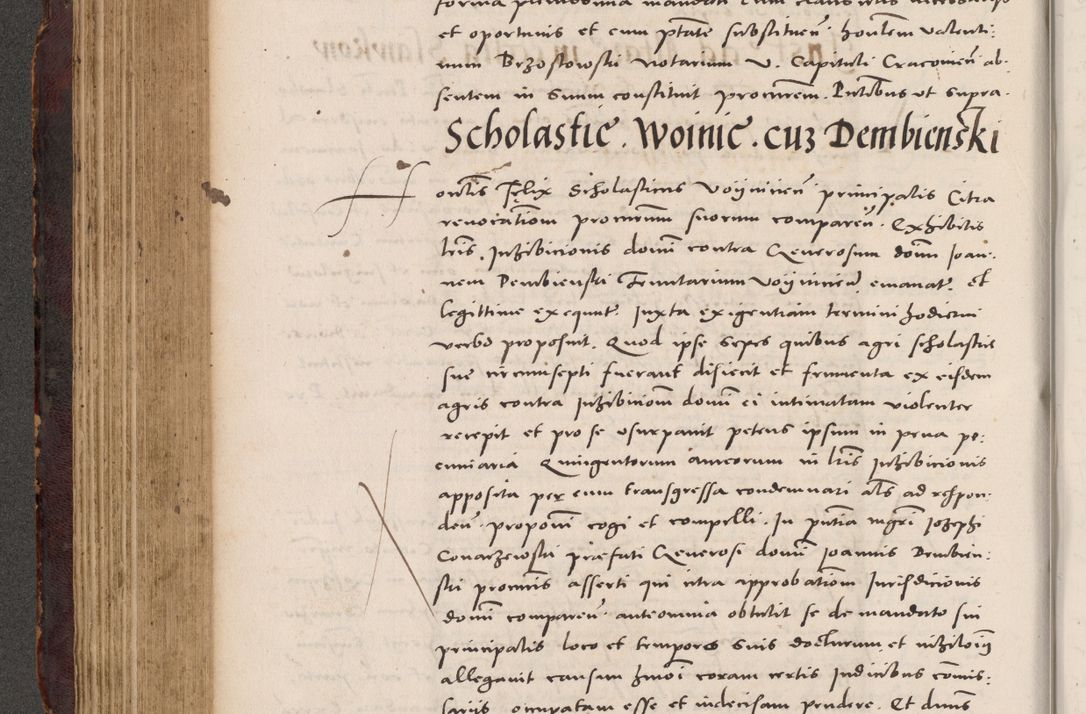 et oportunis et cum ptate substituen. honlem valenti:
num Brzostowski Notarium V. Capituli Cracovien ab:
sentem in Suum constituit procurem. Pntibus ut supra.
Scholastic. Woinic. cuz Dembienski
Hontis Felix Scholasticus Voijnicien principalis Citra
revocatiom procurum suorum comparen. Exhibitis
lris. Inhibicionis domi contra Generosum domi Joan:
nem Dembienski Tenutarium Voijnicien emanat. et
legittime exequut. Juxta exigentiam termini hodierni
verbo proposuit. Quod ipse Sepes quibus agri scholastie
sue circumsepti fuerant disiecit et frumenta ex eisdem
agris contra Inhibiciom domi ei intimatam violenter
recepit et pro se usurpavit petens ipsum in pena pe:
cuniaria Quingentorum aureorum in lris Inhibicionis
apposita per eum transgressa condemnari als ad respon:
den. proponi cogi et compelli. In pntia mgri Jozephi
Conarzewski praefati Generosi domi Joannis Dembien:
ski procuris asserti qui citra approbatiom Jurisdicionis
domi comparen. anteomnia obtulit se de mandato sui
principalis loco et tempore suis docturum et nihiloiq
allegavit causam hmoi coram certis Judicibus comis:
sariis occupatam esse et indecisam pendere. Et dnus